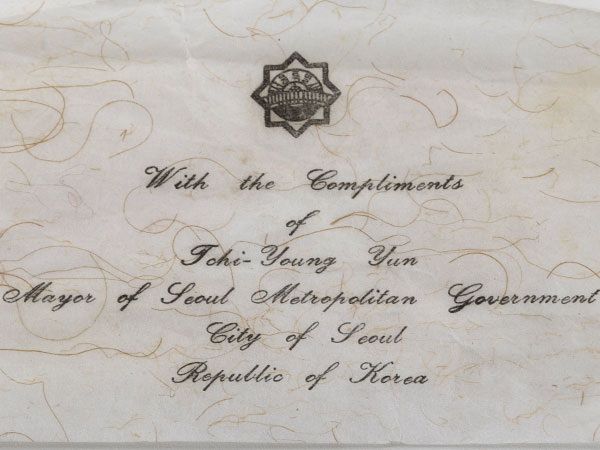 With the Compliments
of
Tchi-Young Yun
Mayor of Seoul Metropolitan Government
City of Seoul
Republic of Korea